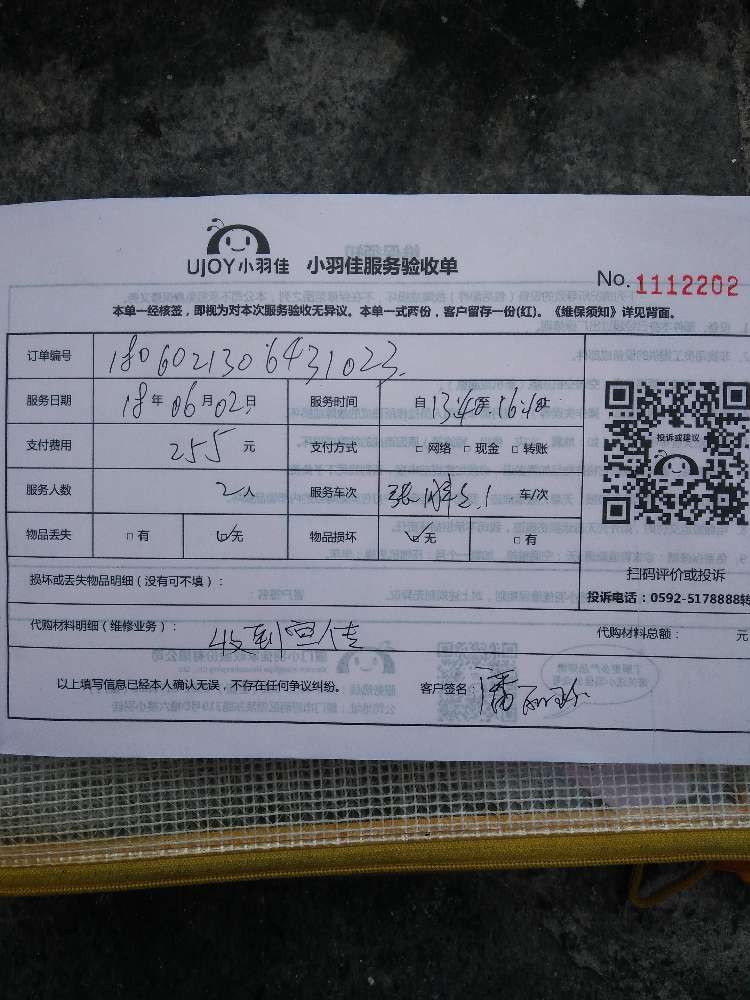 UJOY小羽佳 小羽佳服务验收单
No. 1112202
本单一经核签，即视为对本次服务验收无异议。本单一式两份，客户留存一份(红)。《维保须知》详见背面。
订单编号 1806021306431023
服务日期 18年06月02日 服务时间 自13:40至16:40止
支付费用 255元 支付方式 □网络 □现金 □转账
投诉或建议
服务人数 2人 服务车次 车/次
物品丢失 □有 ☑无 物品损坏 ☑无 □有
扫码评价或投诉
损坏或丢失物品明细（没有可不填）：
投诉电话：0592-5178888转
代购材料明细（维修业务）： 收到宣传
代购材料总额： 元
以上填写信息已经本人确认无误，不存在任何争议纠纷。 客户签名：潘